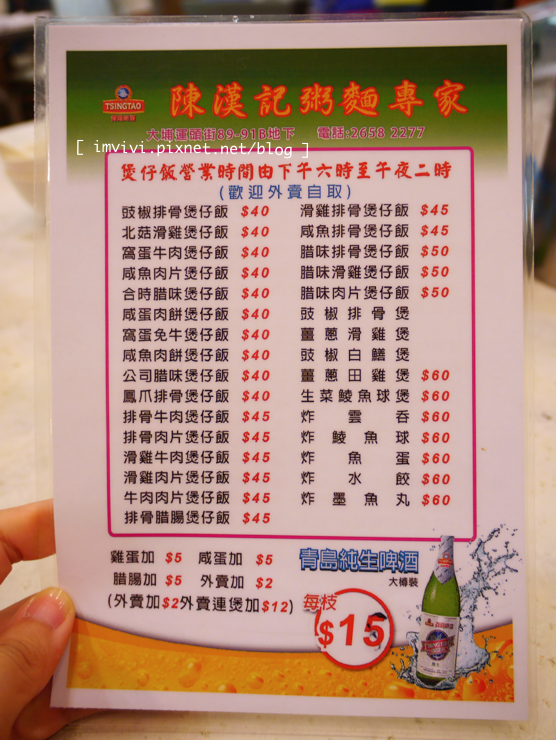 TSINGTAO
陳漢記粥麵專家
大埔運頭街89-91B地下 電話:2658 2277
[ imvivi.pixnet.net/blog ]
煲仔飯營業時間由下午六時至午夜二時
(歡迎外賣自取)
豉椒排骨煲仔飯 $40
北菇滑雞煲仔飯 $40
窩蛋牛肉煲仔飯 $40
咸魚肉片煲仔飯 $40
合時腊味煲仔飯 $40
咸蛋肉餅煲仔飯 $40
窩蛋免牛煲仔飯 $40
咸魚肉餅煲仔飯 $40
公司腊味煲仔飯 $40
鳳爪排骨煲仔飯 $40
排骨牛肉煲仔飯 $45
排骨肉片煲仔飯 $45
滑雞牛肉煲仔飯 $45
滑雞肉片煲仔飯 $45
牛肉肉片煲仔飯 $45
排骨腊腸煲仔飯 $45
滑雞排骨煲仔飯 $45
咸魚排骨煲仔飯 $45
腊味排骨煲仔飯 $50
腊味滑雞煲仔飯 $50
腊味肉片煲仔飯 $50
豉椒排骨煲
薑蔥滑雞煲
豉椒白鱔煲
薑蔥田雞煲 $60
生菜鯪魚球煲 $60
炸雲吞 $60
炸鯪魚球 $60
炸魚蛋 $60
炸水餃 $60
炸墨魚丸 $60
雞蛋加 $5 咸蛋加 $5
腊腸加 $5 外賣加 $2
(外賣加$2外賣連煲加$12)
青島純生啤酒
大樽裝
每枝
$15
TSINGTAO